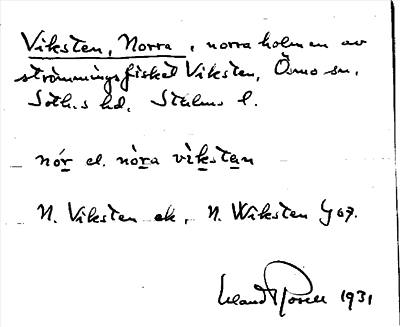 Viksten, Norra, norra holmen av
strömmingsfisket Viksten, Ösmo sn,
Soth.s hd, Sthlms l.
nór el. nòra vìksten
N. Viksten ek, N. Wiksten
1931